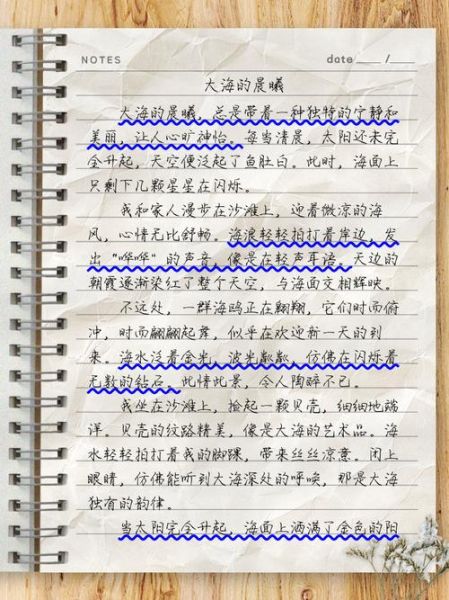 NOTES
date ___ /___
大海的晨曦
大海的晨曦，总是带着一种独特的宁静和
美丽，让人心旷神怡。每当清晨，太阳还未完
全升起，天空便泛起了鱼肚白。此时，海面上
只剩下几颗星星在闪烁。
我和家人漫步在沙滩上，迎着微凉的海
风，心情无比舒畅。海浪轻轻拍打着岸边，发
出“哗哗”的声音，像是在轻声耳语。天边的
朝霞逐渐染红了整个天空，与海面交相辉映。
不远处，一群海鸥正在翱翔，它们时而俯
冲，时而翩翩起舞，似乎在欢迎新一天的到
来。海水泛着金光，波光粼粼，仿佛在闪烁着
无数的钻石。此情此景，令人陶醉不已。
我坐在沙滩上，捡起一颗贝壳，细细地端
详。贝壳的纹路精美，像是大海的艺术品。海
水轻轻拍打着我的脚踝，带来丝丝凉意。闭上
眼睛，仿佛能听到大海深处的呼唤，那是大海
独有的韵律。
当太阳完全升起，海面上洒满了金色的阳